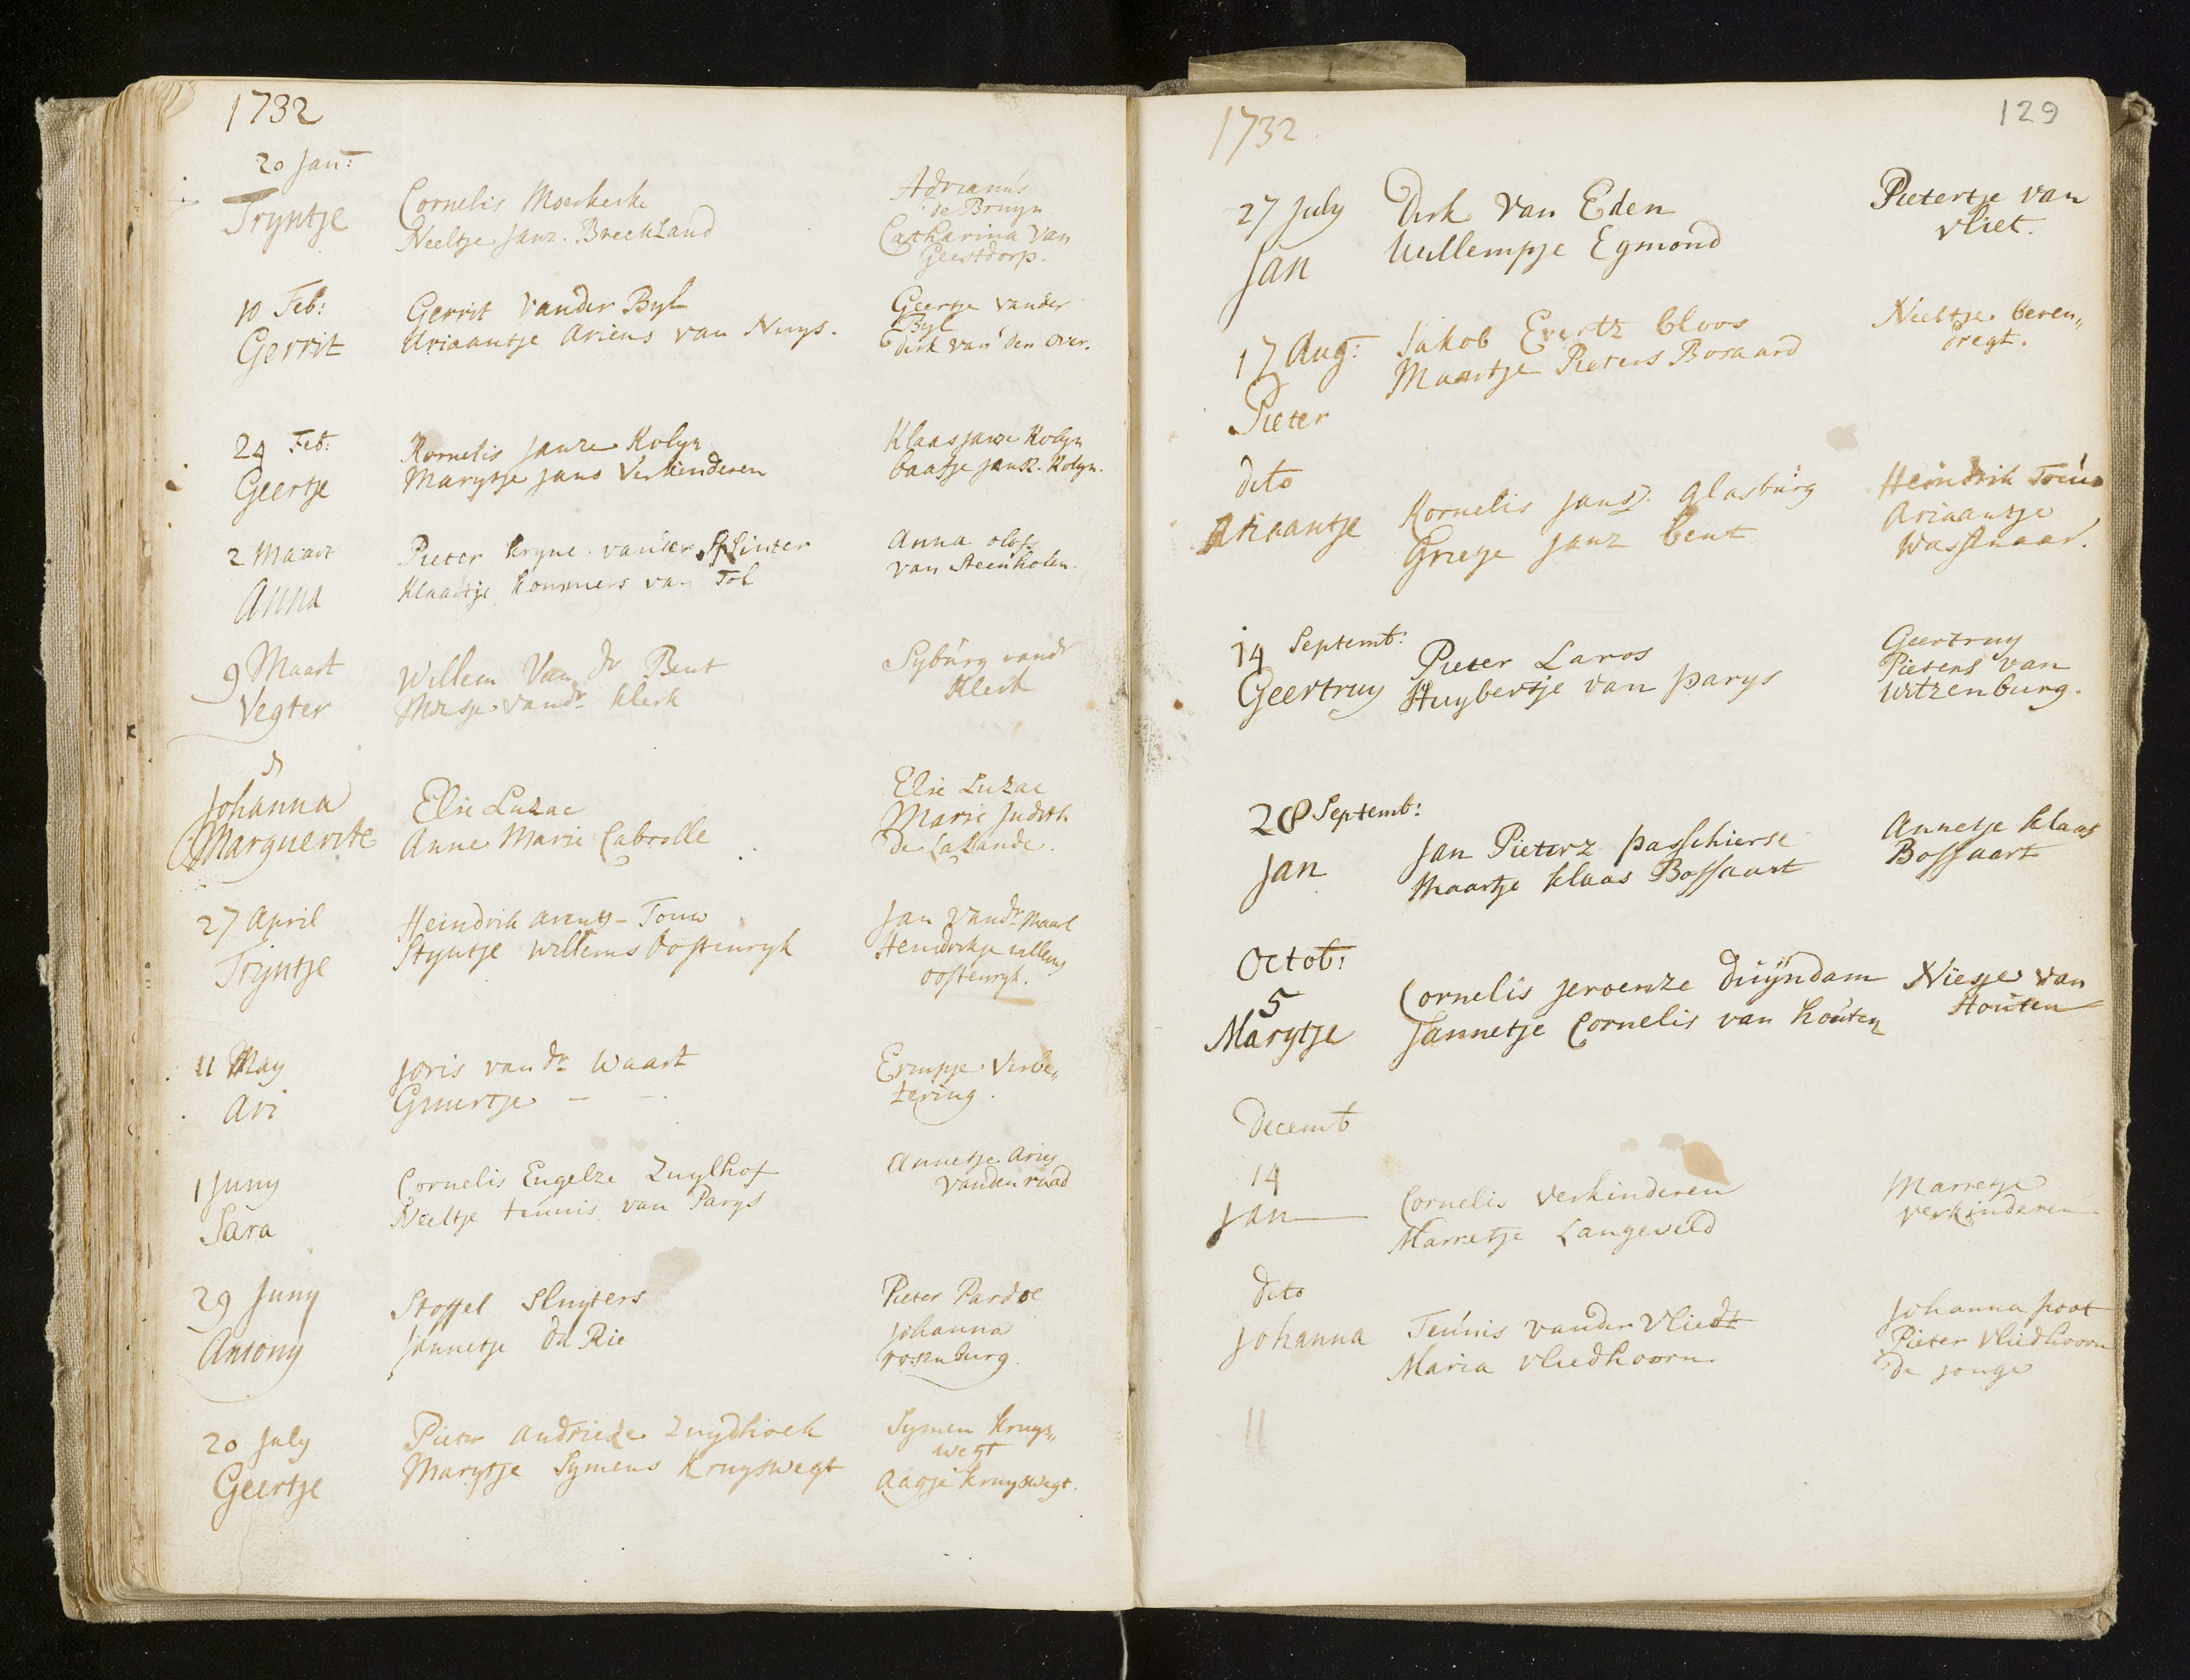 1732
20 Jan:
Tryntje
Cornelis Moerkerke
Neeltje Janz. BreekLand
Adrianus
de Bruyn
Catharina van
Geestdorp.
10 Feb:
Gerrit
Gerrit vander Byl
Ariaantje Ariens van Nuys.
Geertje vander
Byl
Dirk van den Over.
24 Feb:
Geertje
Kornelis Janze Kolyn
Marytje Jans Verkinderen
Klaas Janze Kolyn
Baatje Jansz. Kolyn.
2 Maart
Anna
Pieter Kryne vander Splinter
Klaartje Kommers van Tol
Anna olofs
van Steenholen.
9 Maart
Vegter
Willem Van dr Bent
vandr Klerk
Syburg vandr
Klerk
Johanna
Marguerite
Elie Luzac
Anne Marie Cabrolle
Elie Luzac
Marie Judith
De La Lande.
27 April
Tryntje
Heindrik Arentz- Touw
Styntje Willems Oostenryk
Jan Vandr Maarl
Hendrikje willems
oostenryk.
11 May
Ari
Joris van dr Waart
Guurtje - -
Ermpje Verbe„
tering.
1 Juny
Sara
Cornelis Engelze Zuylhof
Neeltje teunis van Parys
Annetje Aries
vanden raad
29 Juny
Antony
Stoffel Sluyters
Jannetje du Rie
Pieter Pardoe
Johanna
rosenburg.
20 July
Geertje
Pieter Andrieze Zuydhoek
Marytje Symens Kruyswegt
Symen Kruys„
wegt
Aagje Kruyswegt.
1732.
129
27 July
Jan
Dirk Van Eden
Willempje Egmond
Pietertje van
vliet.
17 Aug:
Pieter
Jakob Evertz Cloos
Maartje Pieters Bosaard
Neeltje beren„
dregt.
dito
Ariaantje
Kornelis Jansz. Glasburg
Grietje Janz bent
Heindrik
Ariaantje
Wassenaar.
14 Septemb:
Geertruy
Pieter Laros
Huybertje van parys
Geertruy
Pieters van
Witzenburg.
28 Septemb:
Jan
Jan Pieterz passchierse
Maartje Klaas Bossaart
Annetje Klaas
Bossaart
Octob:
5
Marytje
Cornelis Jeroenze Duyndam
Jannetje Cornelis van houten
Niesje van
Houten
Decemb
14
Jan
Cornelis Verkinderen
Marretje Langeveld
Marretje
verkinderen
dito
Johanna
Teunis vander Vliedt
Maria vliedhoorn
Johanna poot
Pieter Vliedhoorn
de jonge